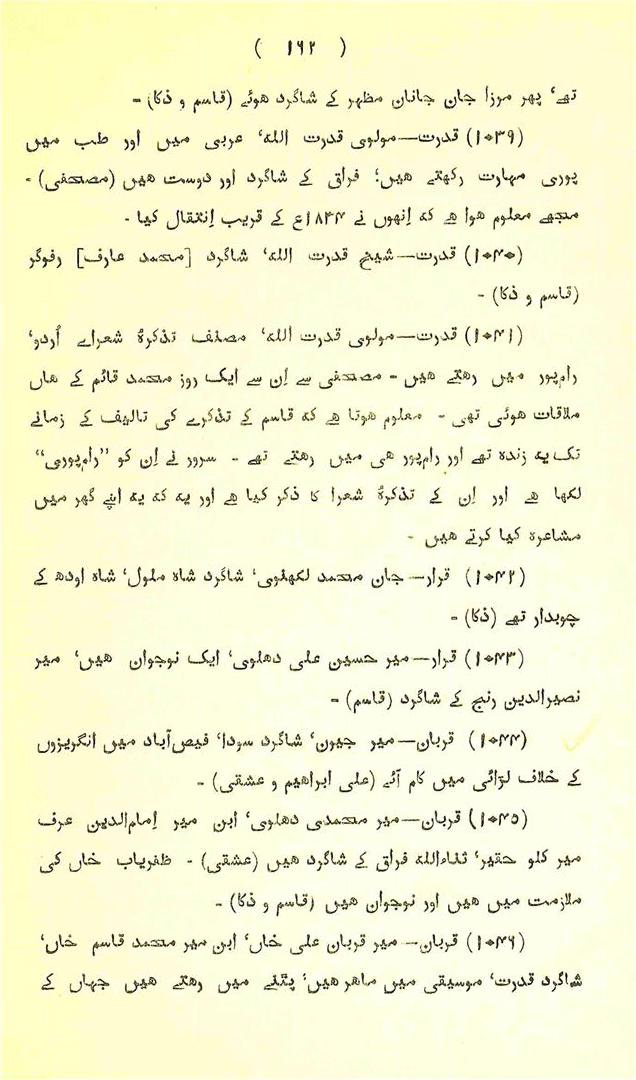 ( ۱۶۲ )
تھے‘ پھر مرزا جان جاناں مظہر کے شاگرد ہوئے (قاسم و ذکا) -
(۱۰۳۹) قدرت—مولوی قدرت اللہ‘ عربی میں اور طب میں
پوری مہارت رکھتے ہیں؛ فراق کے شاگرد اور دوست ہیں (مصحفی) -
مجھے معلوم ہوا ہے کہ اِنھوں نے ۱۸۴۴ع کے قریب اِنتقال کیا -
(۱۰۴۰) قدرت—شیخ قدرت اللہ‘ شاگرد [محمد عارف] رفوگر
(قاسم و ذکا) -
(۱۰۴۱) قدرت—مولوی قدرت اللہ‘ مصنف تذکرۂ شعراے اُردو‘
رام‌پور میں رہتے ہیں - مصحفی سے اِن سے ایک روز محمد قائم کے ہاں
ملاقات ہوئی تھی - معلوم ہوتا ہے کہ قاسم کے تذکرے کی تالیف کے زمانے
تک یہ زندہ تھے اور رام‌پور ھی میں رہتے تھے - سرور نے اِن کو ”رام‌پوری“
لکھا ہے اور اِن کے تذکرۂ شعرا کا ذکر کیا ہے اور یہ کہ یہ اپنے گھر میں
مشاعرہ کیا کرتے ہیں -
(۱۰۴۲) قرار—جان محمد لکھنوی‘ شاگرد شاہ ملول‘ شاہ اودھ کے
چوبدار تھے (ذکا) -
(۱۰۴۳) قرار—میر حسین علی دهلوی‘ ایک نوجوان ہیں‘ میر
نصیرالدین رنج کے شاگرد (قاسم) -
(۱۰۴۴) قربان—میر جیون‘ شاگرد سودا‘ فیض‌آباد میں انگریزوں
کے خلاف لڑائی میں کام آئے (علی ابراهیم و عشقی) -
(۱۰۴۵) قربان—میر محمدی دهلوی‘ ابن میر اِمام‌الدین عرف
میر کلو حقیر‘ ثناءاللہ فراق کے شاگرد ہیں (عشقی) - ظفریاب خاں کی
ملازمت میں ہیں اور نوجوان ہیں (قاسم و ذکا) -
(۱۰۴۶) قربان—میر قربان علی خاں‘ ابن میر محمد قاسم خاں‘
شاگرد قدرت‘ موسیقی میں ماهر ہیں‘ پٹنے میں رہتے ہیں جہاں کے